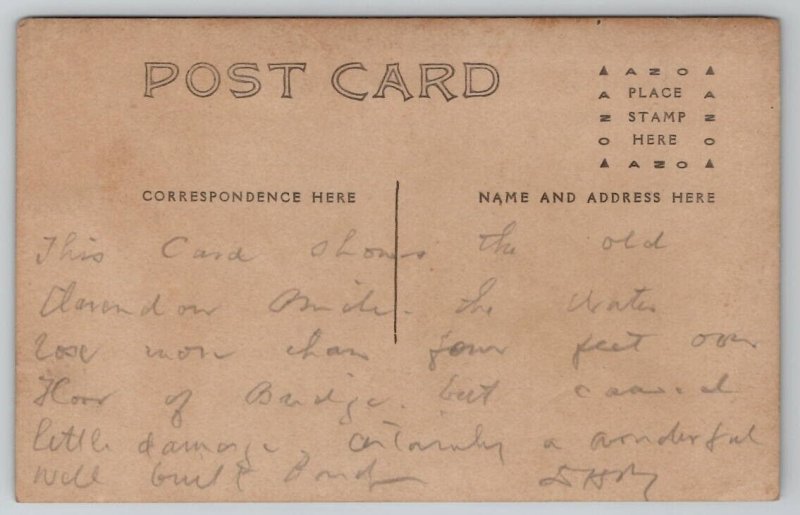 POST CARD
▲ A Z O ▲
A PLACE A
Z STAMP Z
O HERE O
▲ A Z O ▲
CORRESPONDENCE HERE
NAME AND ADDRESS HERE
This Card shows the old
Clarendon the Water
rose more than four feet over
Floor of Bridge. but caused
little damage, certainly a wonderful
well built